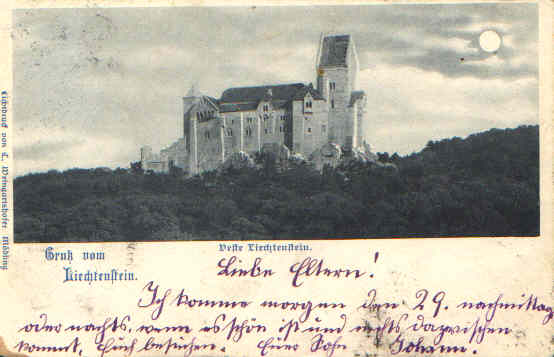 Veste Liechtenstein.
Gruß vom
Liechtenstein.
Liebe Eltern!
Ich komme morgen den 29. nachmittag
oder nachts, wenn es schön ist und nichts dazwischen
kommt, Euch besuchen. Euer Sohn Johann.
Lichtdruck von L. Weingartshofer Mödling